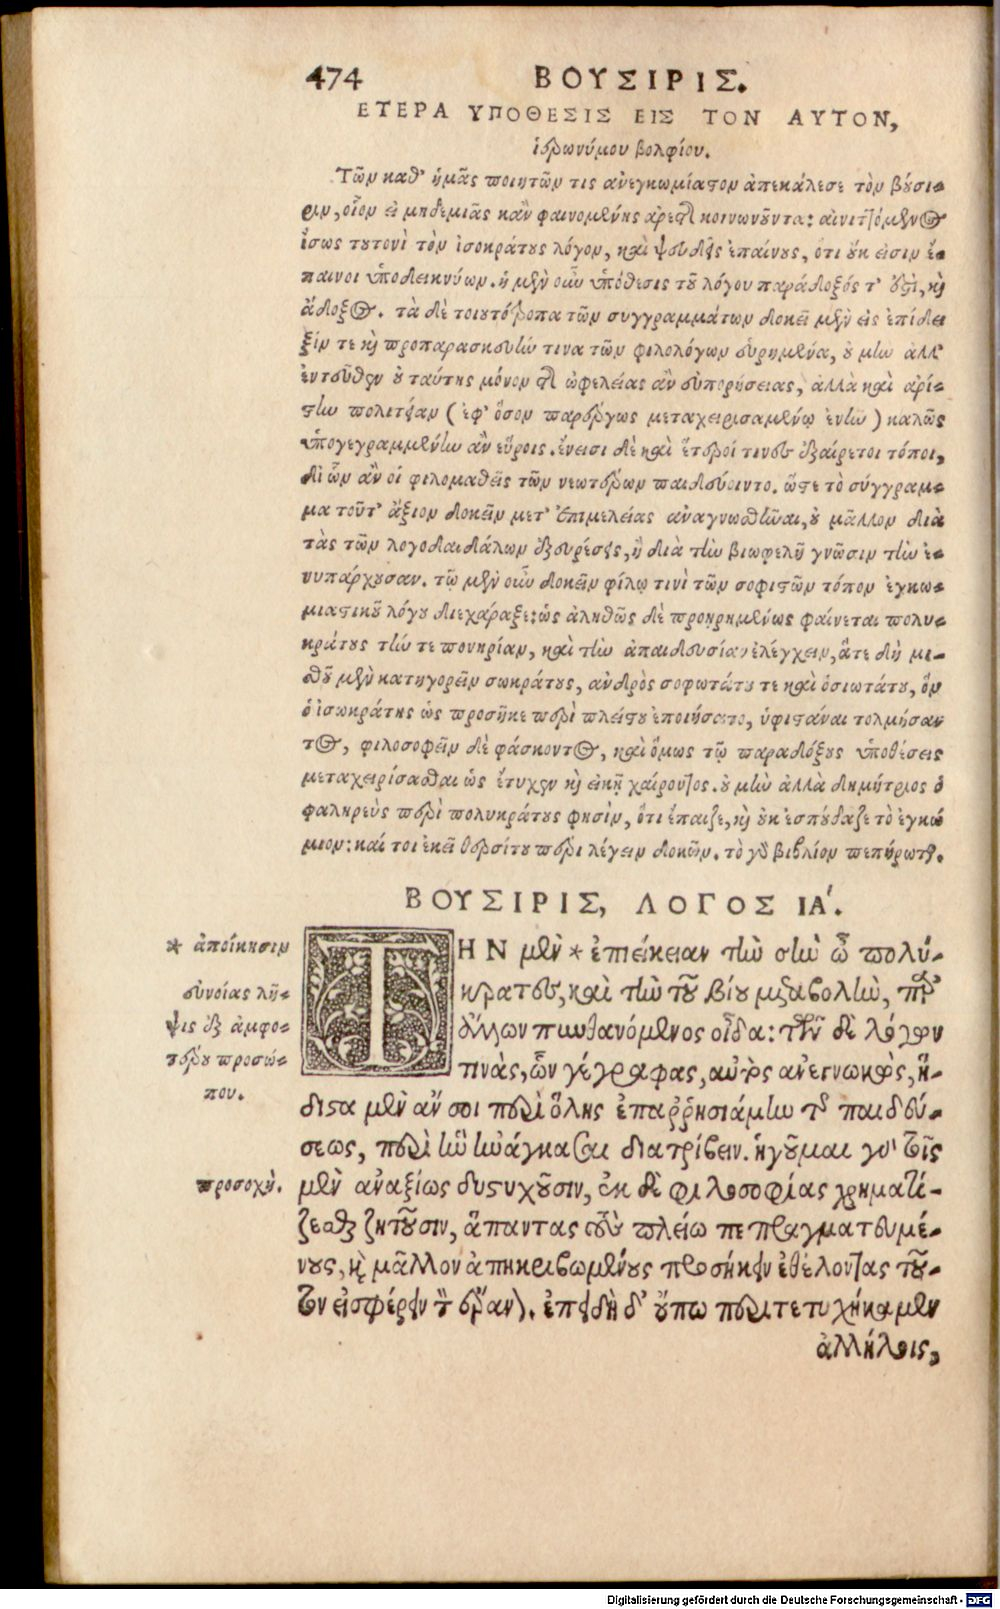 474 ΒΟΥΣΙΡΙΣ.
ΕΤΕΡΑ ΥΠΟΘΕΣΙΣ ΕΙΣ ΤΟΝ ΑΥΤΟΝ,
ἱερωνύμου βολφίου.
Τῶν καθ' ἡμᾶς ποιητῶν τις ἀνεγκωμίαστον ἀπεκάλεσε τὸν βούσι-
ριν, οἷον εἰ μηδεμιᾶς κἂν φαινομένης ἀρετῆς κοινωνοῦντα: αἰνιττόμενος
ἴσως τουτονὶ τὸν ἰσοκράτους λόγον, καὶ ψευδεῖς ἐπαίνους, ὅτι οὔκ εἰσιν ἔ-
παινοι ὑποδεικνύων. ἡ μὲν οὖν ὑπόθεσις τοῦ λόγου παράδοξός τ' ἐστὶ, καὶ
ἄδοξος. τὰ δὲ τοιουτότροπα τῶν συγγραμμάτων δοκεῖ μὲν εἰς ἐπίδει
ξίν τε καὶ προπαρασκευὴν τινα τῶν φιλολόγων εὑρημένα, οὐ μὴν ἀλλ'
ἐντεῦθεν οὐ ταύτης μόνον τῆς ὠφελείας ἂν εὐπορήσειας, ἀλλὰ καὶ ἀρί-
στην πολιτείαν (ἐφ' ὅσον παρέργως μεταχειρισαμένῳ ἐνῆν) καλῶς
ὑπογεγραμμένην ἂν εὕροις. ἔνεισι δὲ καὶ ἕτεροί τινες ἐξαίρετοι τόποι,
δι' ὧν ἂν οἱ φιλομαθεῖς τῶν νεωτέρων παιδεύοιντο. ὥστε τὸ σύγγραμ-
μα τοῦτ' ἄξιον δοκεῖν μετ' ἐπιμελείας ἀναγνωσθῆναι, οὐ μᾶλλον διὰ
τὰς τῶν λογοδαιδάλων ἐξευρέσεις, ἢ διὰ τὴν βιωφελῆ γνῶσιν τὴν ἐ-
νυπάρχουσαν. τῷ μὲν οὖν δοκεῖν φίλῳ τινὶ τῶν σοφιστῶν τόπον ἐγκω-
μιαστικοῦ λόγου διεχάραξε: ὡς ἀληθῶς δὲ προῃρημένως φαίνεται πολυ-
κράτους τήν τε πονηρίαν, καὶ τὴν ἀπαιδευσίαν ἐλέγχειν, ἅτε δὴ μι-
σθοῦ μὲν κατηγορεῖν σωκράτους, ἀνδρὸς σοφωτάτου τε καὶ ὁσιωτάτου, ὃν
ὁ ἰσωκράτης ὡς προσῆκε περὶ πλείστου ἐποιήσατο, ὑφιστάναι τολμήσαν
τος, φιλοσοφεῖν δὲ φάσκοντος, καὶ ὅμως τῷ παραδόξους ὑποθέσεις
μεταχειρίσασθαι ὡς ἔτυχεν καὶ εἰκῇ χαίροντος. οὐ μὴν ἀλλὰ δημήτριος ὁ
φαληρεὺς περὶ πολυκράτους φησὶν, ὅτι ἔπαιζε, καὶ οὐκ ἐσπούδαζε τὸ ἐγκώ
μιον: καί τοι ἐκεῖ θερσίτου περὶ λέγειν δοκῶν. τὸ γὰρ βιβλίον πεπήρωται.
ΒΟΥΣΙΡΙΣ, ΛΟΓΟΣ ΙΑ'.
ΤΗΝ μὲν * ἐπιείκειαν τὴν σὴν ὦ πολύ-
κρατες, καὶ τὴν τοῦ βίου μεταβολὴν, παρ'
ἄλλων πυνθανόμενος οἶδα: τῶν δὲ λόγων
τινὰς, ὧν γέγραφας, αὐτὸς ἀνεγνωκὼς, ἥ-
διστα μὲν ἄν σοι περὶ ὅλης ἐπαρρησιάμην τῆς παιδεύ-
σεως, περὶ ἣν ἠνάγκασαι διατρίβειν. ἡγοῦμαι γὰρ τοῖς
μὲν ἀναξίως δυστυχοῦσιν, ἐκ δὲ φιλοσοφίας χρηματί-
ζεσθαι ζητοῦσιν, ἅπαντας τοὺς πλείω πεπραγματευμέ-
νους, καὶ μᾶλλον ἀπηκριβωμένους προσήκειν ἐθέλοντας τοῦ-
τον εἰσφέρειν τὸν ἔρανον. ἐπειδὴ δ' οὔπω περιτετυχήκαμεν
ἀλλήλοις,
* ἀποίκησιν
εὐνοίας λῆ-
ψις ἐξ ἀμφο-
τέρου προσώ-
που.
προσοχή.
Digitalisierung gefördert durch die Deutsche Forschungsgemeinschaft - DFG